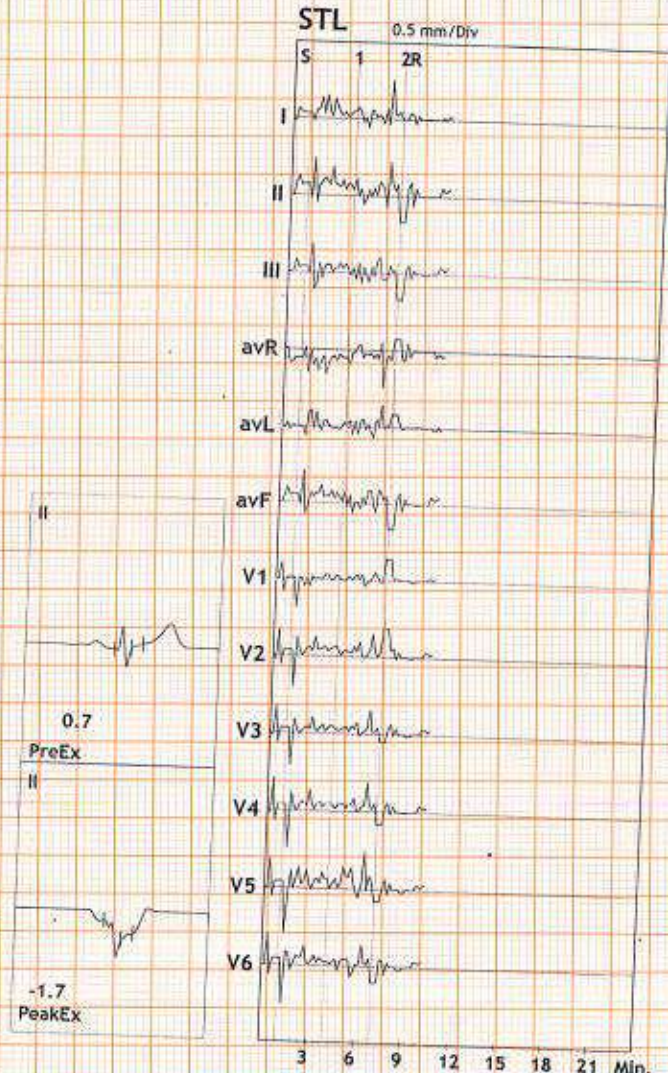 STL 0.5 mm/Div
S 1 2R
I
II
III
avR
avL
avF
V1
V2
V3
V4
V5
V6
3 6 9 12 15 18 21 Min.
II
0.7
PreEx
II
-1.7
PeakEx